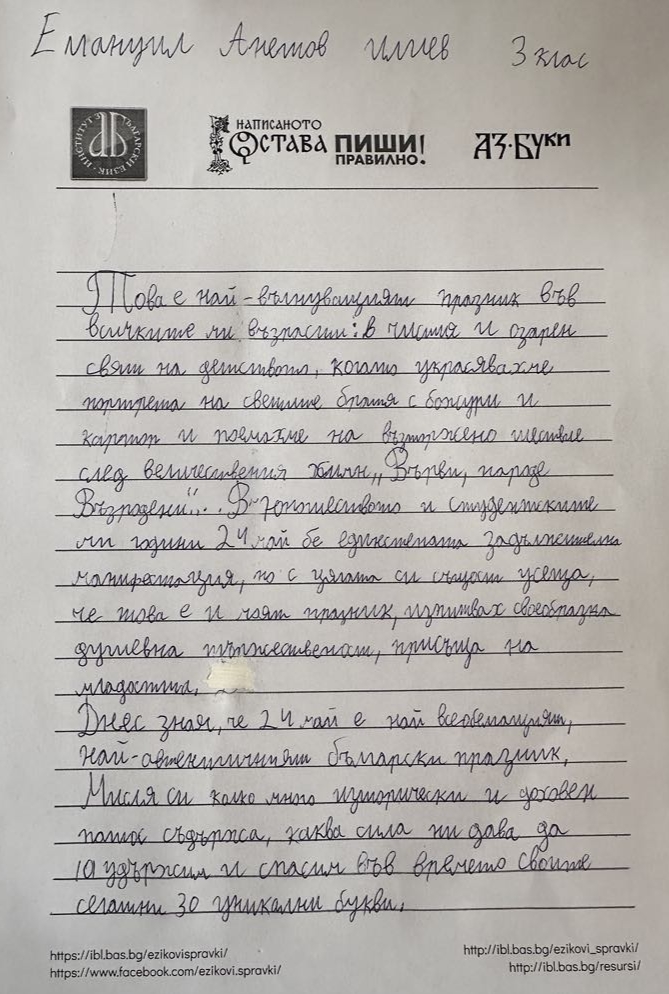 Емануил Анетов Илиев 3 клас
ИНСТИТУТ ЗА БЪЛГАРСКИ ЕЗИК
НАПИСАНОТО ОСТАВА ПИШИ ПРАВИЛНО!
АЗ·БУКИ
Това е най-вълнуващият празник във
всичките ми възрасти: в чистия и озарен
свят на детството, когато украсявахме
портрета на светите братя с божури и
и поемахме на възторжено шествие
след величествения химн „Върви, народе
Възродени“... В юношеството и студентските
ми години 24 май бе единствената задължителна
манифестация, но с цялата си същост усеща,
че това е и моят празник, изпитвах своеобразна
душевна тържественост, присъща на
младостта.
Днес зная, че 24 май е най всеобемащият,
най-автентичният български празник.
Мисля си колко много исторически и духовен
съдържа, каква сила ни дава да
удържим и спасим във времето своите
сегашни 30 уникални букви.
https://ibl.bas.bg/ezikovispravki/
https://www.facebook.com/ezikovi.spravki/
http://ibl.bas.bg/ezikovi_spravki/
http://ibl.bas.bg/resursi/